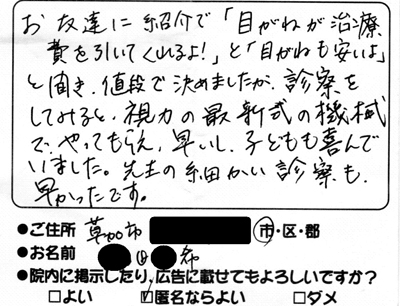 お友達に紹介で「目がねが治療
費を引いてくれるよ!」と「目がねも安いよ」
と聞き、値段で決めましたが、診察を
してみると、視力の最新式の機械
で、やってもらえ、早いし、子どもも喜んで
いました。先生の細かい診察も
早かったです。
●ご住所 草加市 市・区・郡
●お名前 希
●院内に掲示したり、広告に載せてもよろしいですか?
□よい ☑匿名ならよい □ダメ